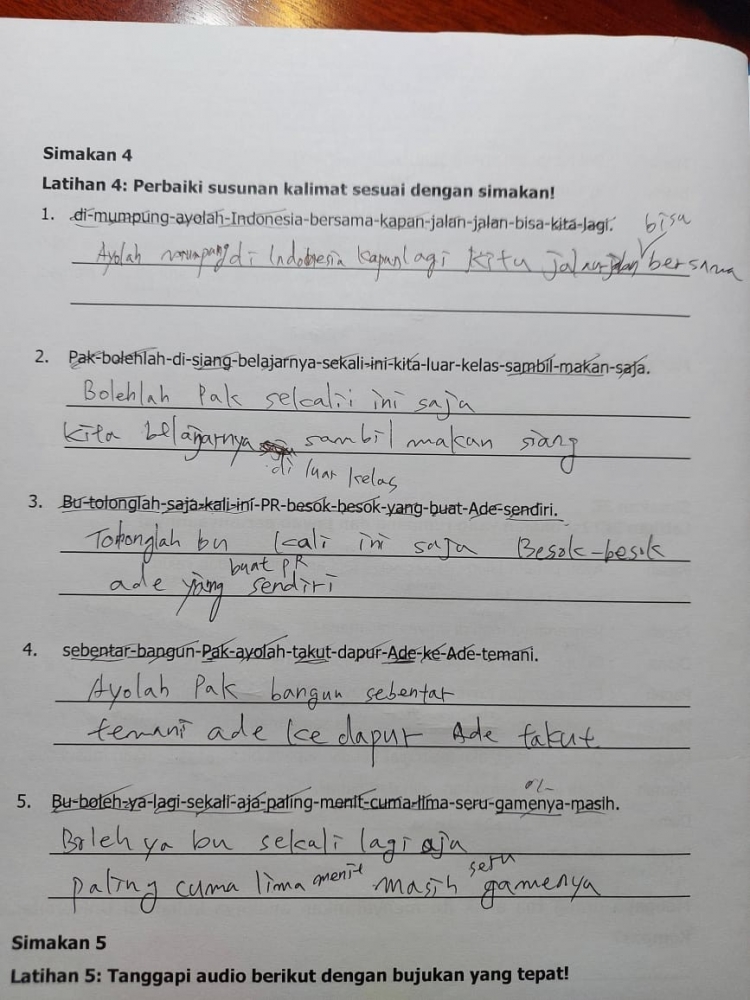 Simakan 4
Latihan 4: Perbaiki susunan kalimat sesuai dengan simakan!
1. di-mumpung-ayolah-Indonesia-bersama-kapan-jalan-jalan-bisa-kita-lagi.
bisa
Ayolah mumpung di Indonesia kapan lagi kita jalan-jalan bersama
2. Pak-bolehlah-di-siang-belajarnya-sekali-ini-kita-luar-kelas-sambil-makan-saja.
Bolehlah Pak sekali ini saja
kita belajarnya sambil makan siang
di luar kelas
3. Bu-tolonglah-saja-kali-ini-PR-besok-besok-yang-buat-Ade-sendiri.
Tolonglah bu kali ini saja Besok-besok
buat PR
ade yang sendiri
4. sebentar-bangun-Pak-ayolah-takut-dapur-Ade-ke-Ade-temani.
Ayolah Pak bangun sebentar
temani ade ke dapur Ade takut
5. Bu-boleh-ya-lagi-sekali-aja-paling-menit-cuma-lima-seru-gamenya-masih.
Boleh ya bu sekali lagi aja
paling cuma lima menit masih seru gamenya
Simakan 5
Latihan 5: Tanggapi audio berikut dengan bujukan yang tepat!